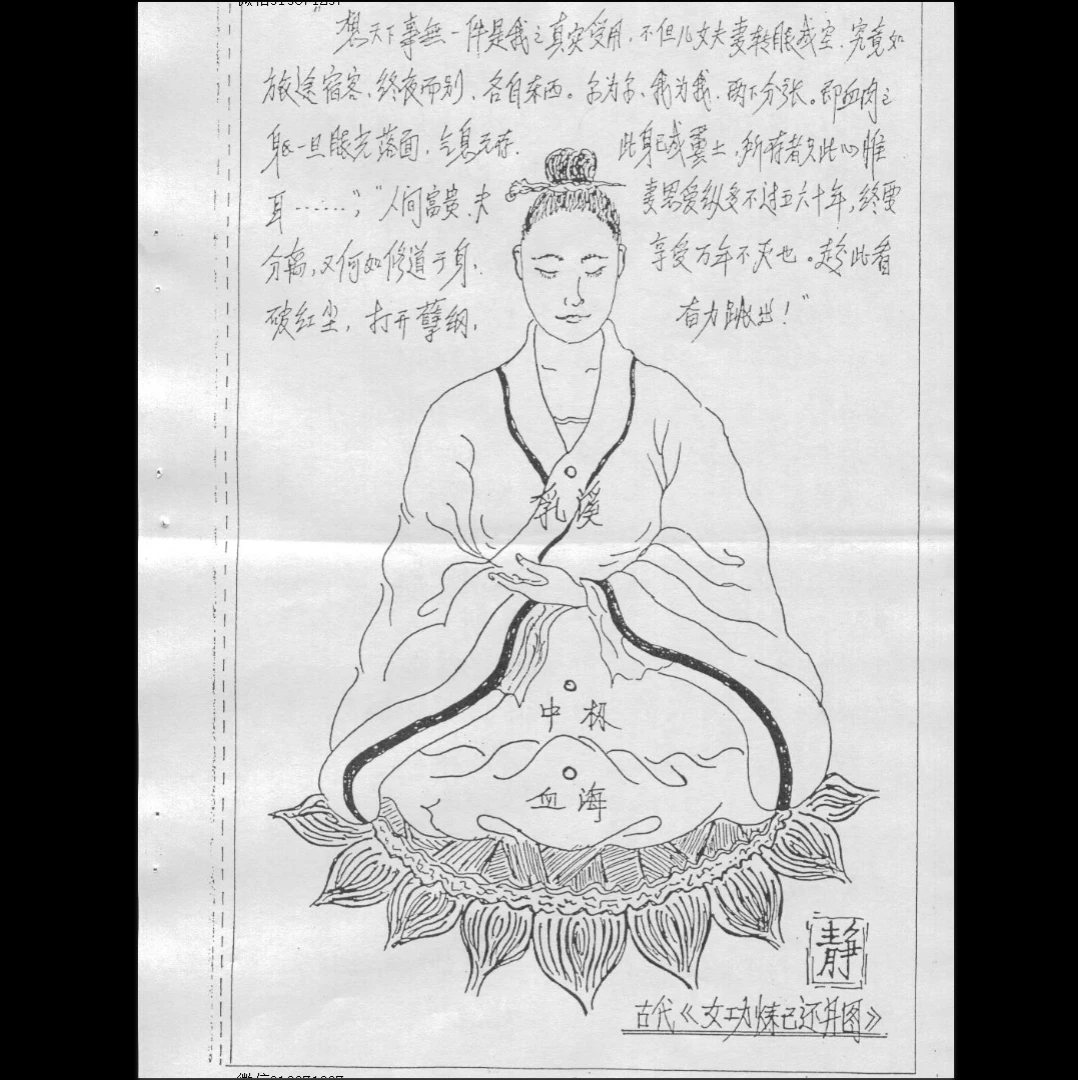 想天下事無一件是我之真实受用，不但儿女夫妻转眼成空，究竟如
旅途宿客，终夜而别，各自东西。尔为尔，我为我，两下分张。即血肉之
身，一旦眼光落面，气息无存，此身已成粪土，所存者只此心性
耳……”；“人间富贵、夫妻恩爱纵多不过五六十年，终要
分离，又何如修道于身，享受万年不灭也。趁此看
破红尘，打开孽网，奋力跳出！”
乳溪
中极
血海
静
古代《女功炼己还丹图》